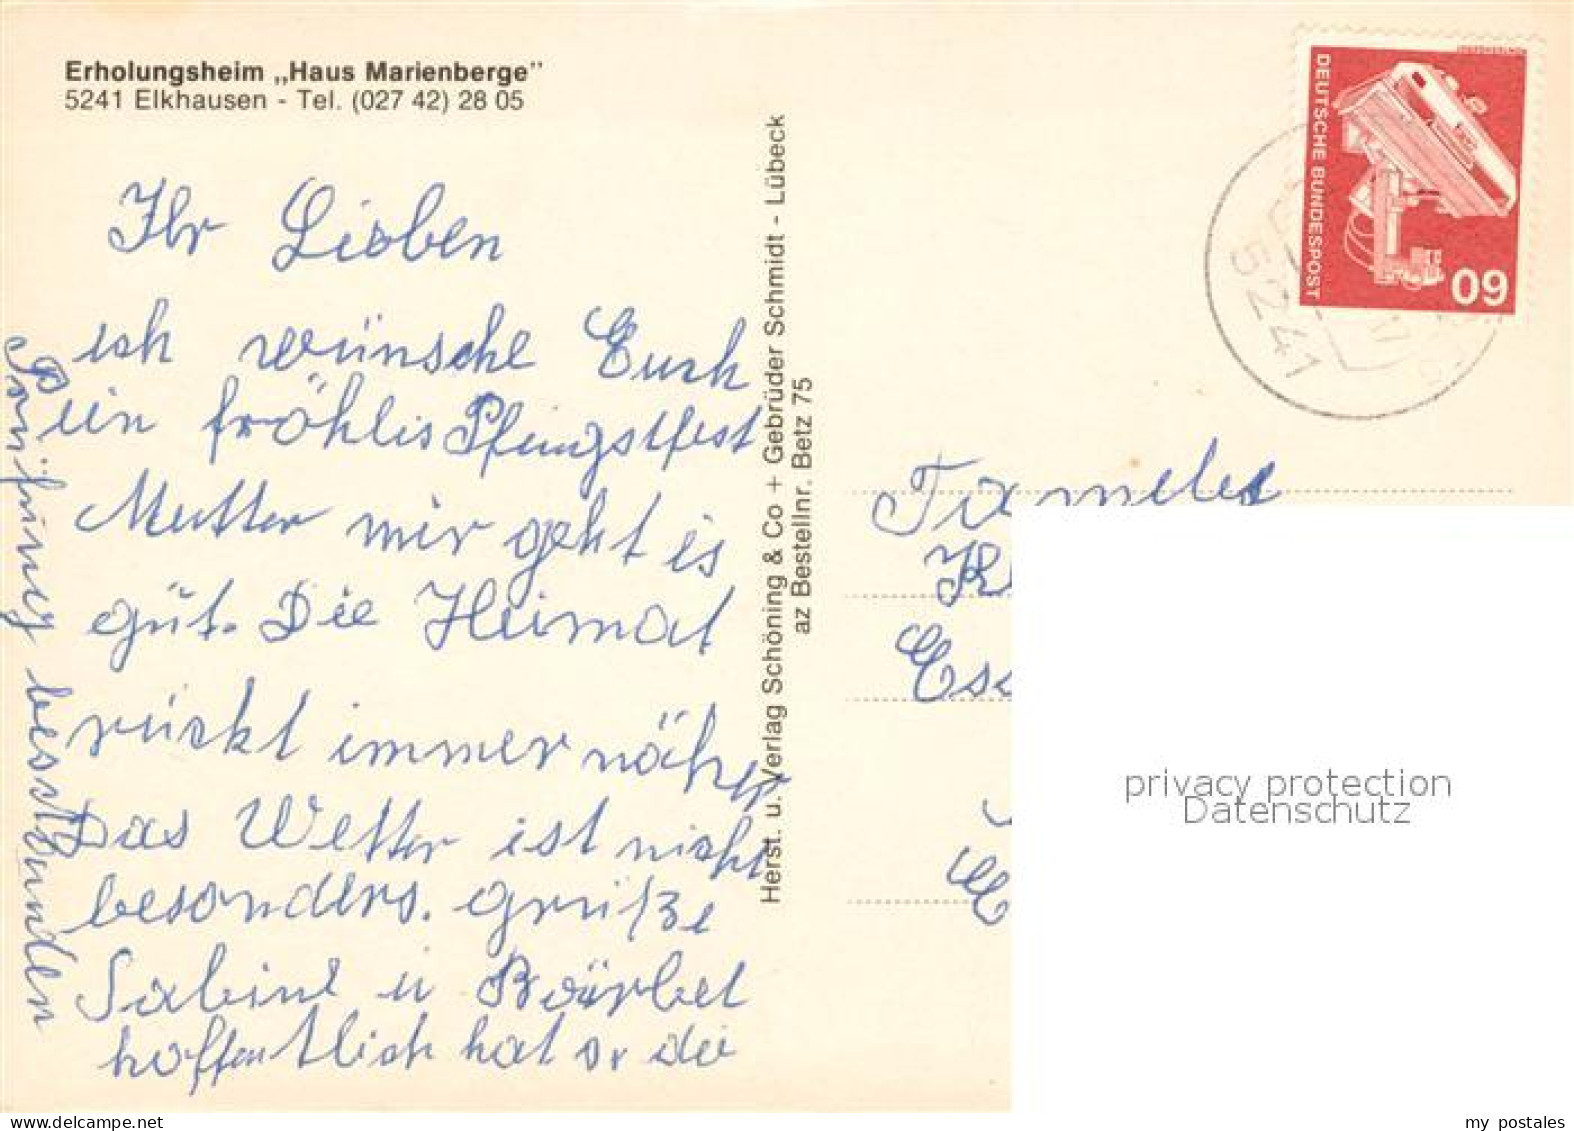 Erholungsheim „Haus Marienberge"
5241 Elkhausen - Tel. (027 42) 28 05
Ihr Lieben
ich wünsche Euch
ein fröhlis Pfingstfest
Mutter mir geht is
gut. Die Heimat
rückt immer näher
Das Wetter ist nicht
besonders. Grüße
Sabine u Bärbel
hoffentlich hat er die
Prüfung bestanden
Herst. u. Verlag Schöning & Co + Gebrüder Schmidt - Lübeck
az Bestellnr. Betz 75
DEUTSCHE BUNDESPOST
60
5241
K
Ess
privacy protection
Datenschutz
www.delcampe.net
my postales